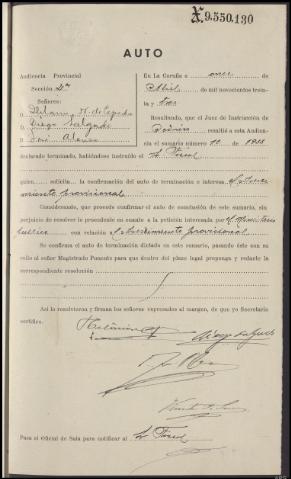 X.9.550.130
AUTO
Audiencia Provincial
Sección 2ª
Señores:
D
Diego Salgado
José Alonso
En La Coruña a once de
Abril de mil novecientos trein-
ta y tres
Resultando, que el Juez de Instrucción de
remitió a esta Audien-
cia el sumario número 10 de 19
declarado terminado, habiéndose instruido el S. Fiscal
quien solicita la confirmación del auto de terminación e interesa el sobresei-
miento provisional
Considerando, que procede confirmar el auto de conclusión de este sumario, sin
perjuicio de resolver lo procedente en cuanto a la petición interesada por el Ministerio
público con relación al sobreseimiento provisional
Se confirma el auto de terminación dictado en este sumario, pasando éste con su
rollo al señor Magistrado Ponente para que dentro del plazo legal proponga y redacte la
correspondiente resolución
Así lo resolvieron y firman los señores expresados al margen, de que yo Secretario
certifico.
Para el Oficial de Sala para notificar al S. Fiscal